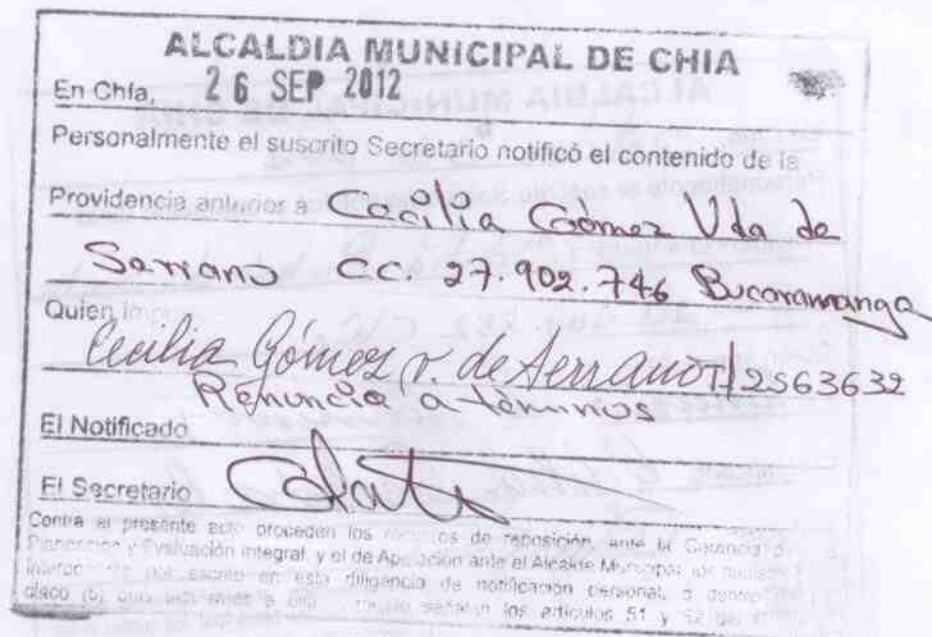 ALCALDIA MUNICIPAL DE CHIA
En Chía, 26 SEP 2012
Personalmente el suscrito Secretario notificó el contenido de la
Providencia anterior a Cecilia Gómez Vda de
Serrano CC. 27.902.746 Bucaramanga
Quien
Cecilia Gómez v. de Serrano T/ 2563632
Renuncia a términos
El Notificado
El Secretario
Contra el presente acto proceden los recursos de reposición ante la Gerencia de
Planeación y Evaluación integral, y el de Apelación ante el Alcalde Municipal, los
por escrito en esta diligencia de notificación personal, o dentro
cinco (5) días a señalan los artículos 51 y 52 del